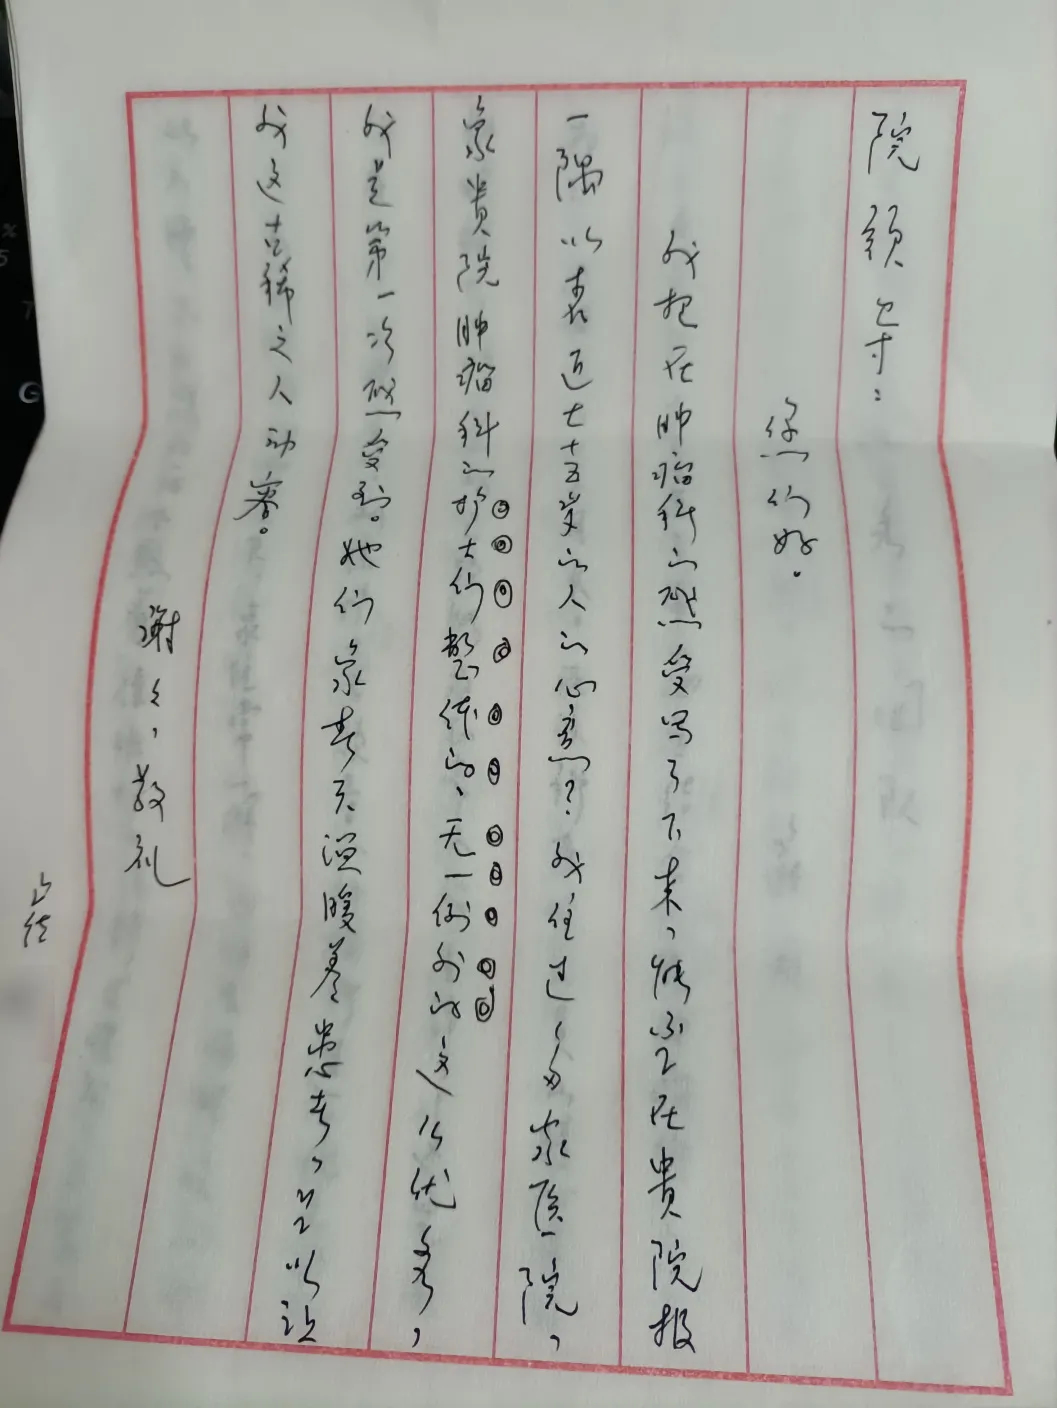 院领导：
您们好。
我把在肿瘤科的感受写了下来，能不能在贵院报
一隅以表近七十五岁的人的心意？我住过很多家医院，
象贵院肿瘤科的护士们整体的、无一例外的这么优秀，
我是第一次感受到。她们象春天温暖着患者，足以让
我这古稀之人动容。
谢谢，敬礼